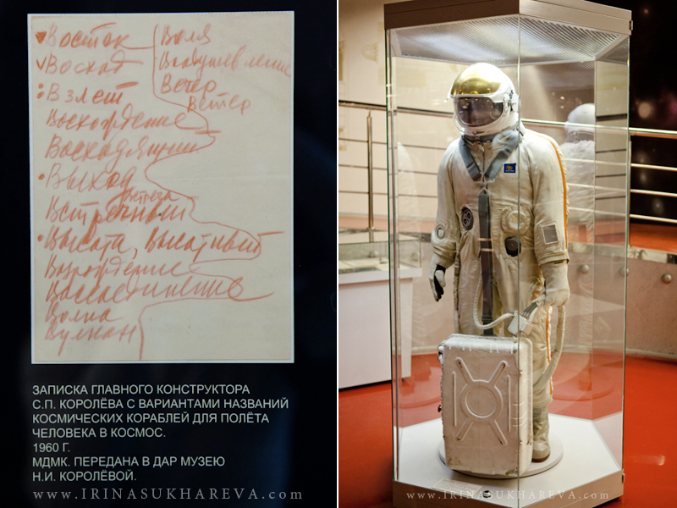 Восток
Восход
Взлет
Восхождение
Восходящий
Выход
встреча
Встречный
Высота, высотный
Возрождение
Воссоединение
Волна
Вулкан
Воля
Воодушевление
Вечер
Ветер
ЗАПИСКА ГЛАВНОГО КОНСТРУКТОРА
С.П. КОРОЛЁВА С ВАРИАНТАМИ НАЗВАНИЙ
КОСМИЧЕСКИХ КОРАБЛЕЙ ДЛЯ ПОЛЁТА
ЧЕЛОВЕКА В КОСМОС.
1960 Г.
МДМК. ПЕРЕДАНА В ДАР МУЗЕЮ
Н.И. КОРОЛЁВОЙ.
www.IRINASUKHAREVA.com
www.IRINASUKHAREVA.com